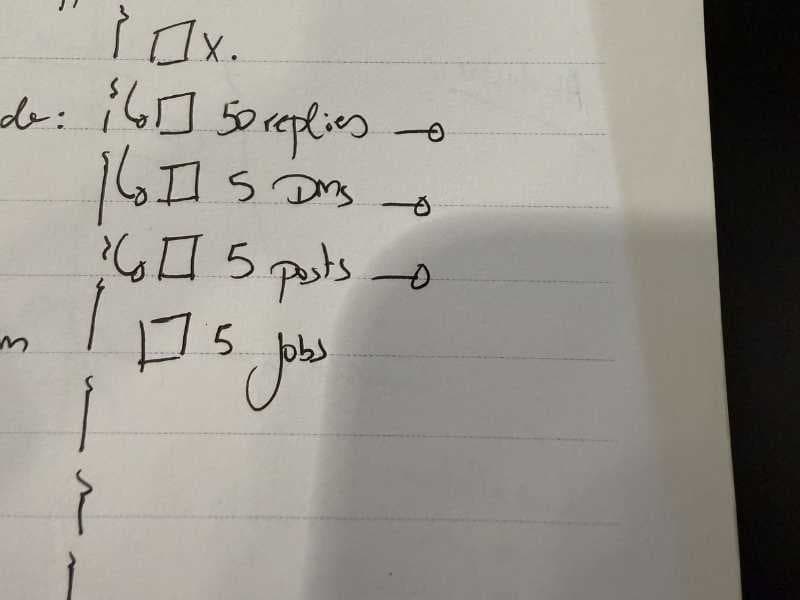 □ X.
de: □ 50 replies
□ 5 DMs
□ 5 posts
□ 5 jobs